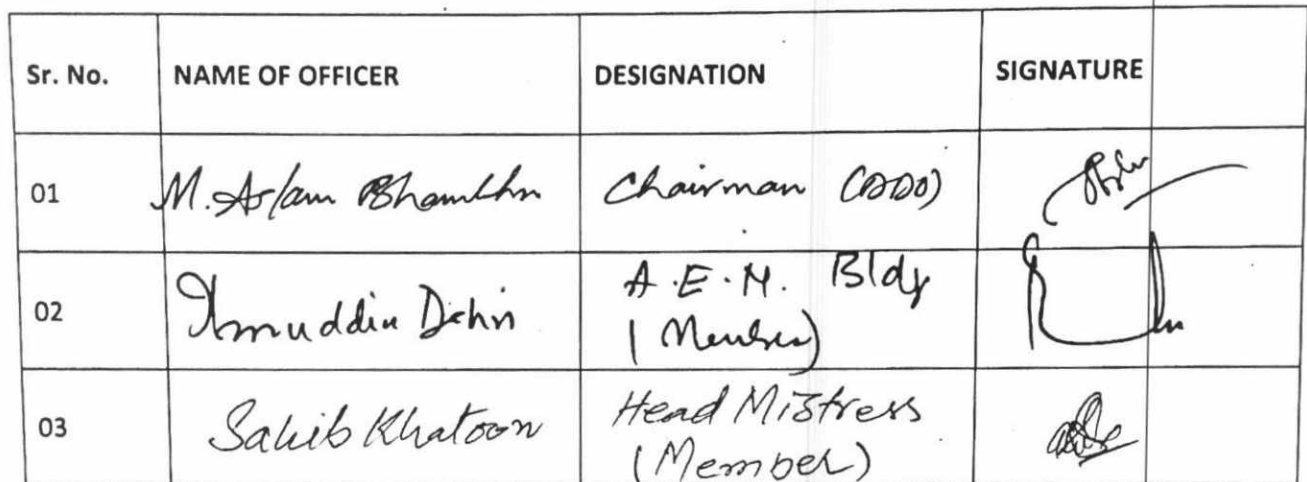 Sr. No. NAME OF OFFICER DESIGNATION SIGNATURE
01 M. Aslam Chairman (DDO)
02 A.E.M. Bldg
(Member)
03 Sahib Khatoon Head Mistress
(Member)